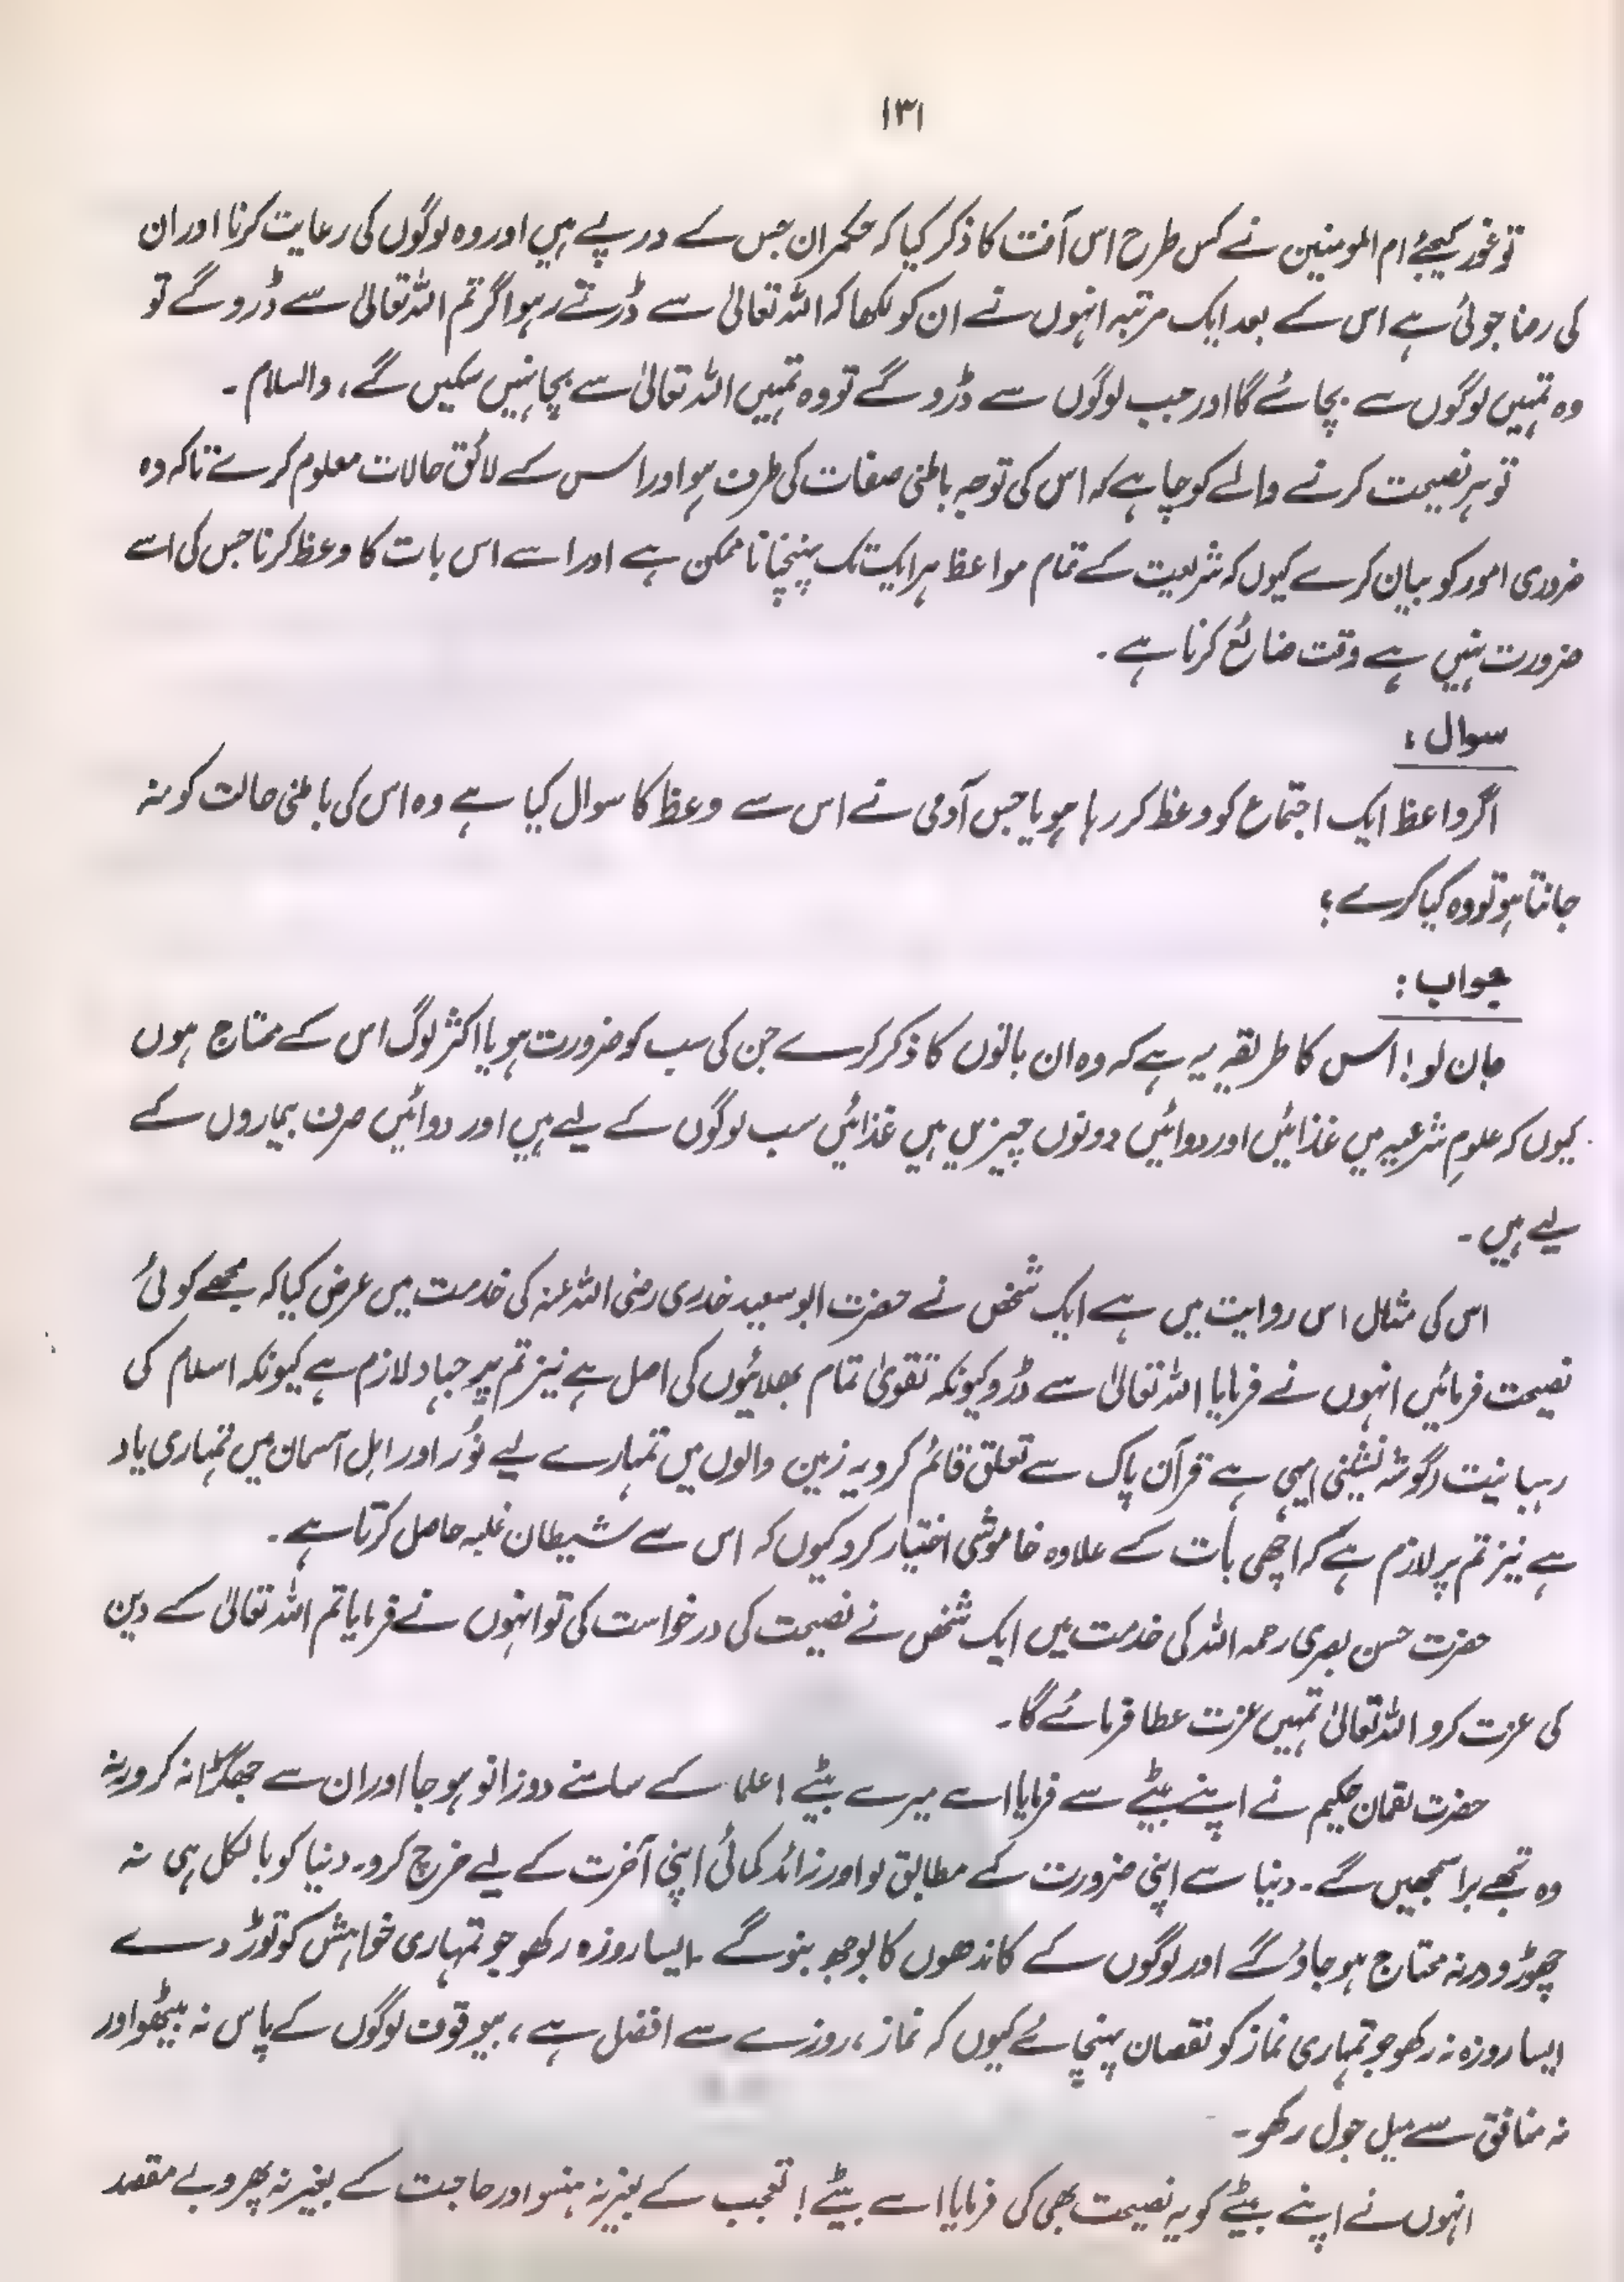 ۱۳۱
تو غور کیجئے ام المومنین نے کس طرح اس آفت کا ذکر کیا کہ حکمران جس کے درپے ہیں اور وہ لوگوں کی رعایت کرنا اور ان
کی رضا جوئی ہے اس کے بعد ایک مرتبہ انہوں نے ان کو لکھا کہ اللہ تعالیٰ سے ڈرتے رہو اگر تم اللہ تعالیٰ سے ڈرو گے تو
وہ تمہیں لوگوں سے بچائے گا اور جب لوگوں سے ڈرو گے تو وہ تمہیں اللہ تعالیٰ سے بچا نہیں سکیں گے، والسلام ۔
تو ہر نصیحت کرنے والے کو چاہے کہ اس کی توجہ باطنی صفات کی طرف ہو اور اس کے لائق حالات معلوم کرے تاکہ وہ
ضروری امور کو بیان کرے کیوں کہ شریعت کے تمام مواعظ ہر ایک تک پہنچانا ناممکن ہے اور اسے اس بات کا وعظ کرنا جس کی اسے
ضرورت نہیں ہے وقت ضائع کرنا ہے ۔
سوال :
اگر واعظ ایک اجتماع کو وعظ کر رہا ہو یا جس آدمی نے اس سے وعظ کا سوال کیا ہے وہ اس کی باطنی حالت کو نہ
جانتا ہو تو وہ کیا کرے ؟
جواب :
جان لو! اس کا طریقہ یہ ہے کہ وہ ان باتوں کا ذکر کرے جن کی سب کو ضرورت ہو یا اکثر لوگ اس کے محتاج ہوں
کیوں کہ علومِ شرعیہ میں غذائیں اور دوائیں دونوں چیزیں ہیں غذائیں سب لوگوں کے لیے ہیں اور دوائیں صرف بیماروں کے
لیے ہیں ۔
اس کی مثال اس روایت میں ہے ایک شخص نے حضرت ابو سعید خدری رضی اللہ عنہ کی خدمت میں عرض کیا کہ مجھے کوئی
نصیحت فرمائیں انہوں نے فرمایا اللہ تعالیٰ سے ڈرو کیونکہ تقویٰ تمام بھلائیوں کی اصل ہے نیز تم پر جہاد لازم ہے کیونکہ اسلام کی
رہبانیت (گوشہ نشینی) یہی ہے قرآن پاک سے تعلق قائم کرو یہ زمین والوں میں تمہارے لیے نُور اور اہل آسمان میں تمہاری یاد
ہے نیز تم پر لازم ہے کہ اچھی بات کے علاوہ خاموشی اختیار کرو کیوں کہ اس سے شیطان غلبہ حاصل کرتا ہے ۔
حضرت حسن بصری رحمہ اللہ کی خدمت میں ایک شخص نے نصیحت کی درخواست کی تو انہوں نے فرمایا تم اللہ تعالیٰ کے دین
کی عزت کرو اللہ تعالیٰ تمہیں عزت عطا فرمائے گا ۔
حضرت لقمان حکیم نے اپنے بیٹے سے فرمایا اے میرے بیٹے ! علما کے سامنے دو زانو ہو جا اور ان سے جھگڑا نہ کرو ورنہ
وہ تجھے برا سمجھیں گے ۔ دنیا سے اپنی ضرورت کے مطابق لو اور زائد کمائی اپنی آخرت کے لیے خرچ کرو ۔ دنیا کو بالکل ہی نہ
چھوڑو ورنہ محتاج ہو جاؤ گے اور لوگوں کے کاندھوں کا بوجھ بنو گے ۔ ایسا روزہ رکھو جو تمہاری خواہش کو توڑ دے
ایسا روزہ نہ رکھو جو تمہاری نماز کو نقصان پہنچائے کیوں کہ نماز، روزے سے افضل ہے ، بیوقوف لوگوں کے پاس نہ بیٹھو اور
نہ منافق سے میل جول رکھو ۔
انہوں نے اپنے بیٹے کو یہ نصیحت بھی کی فرمایا اے بیٹے ! تعجب کے بغیر نہ ہنسو اور حاجت کے بغیر نہ پھرو بے مقصد